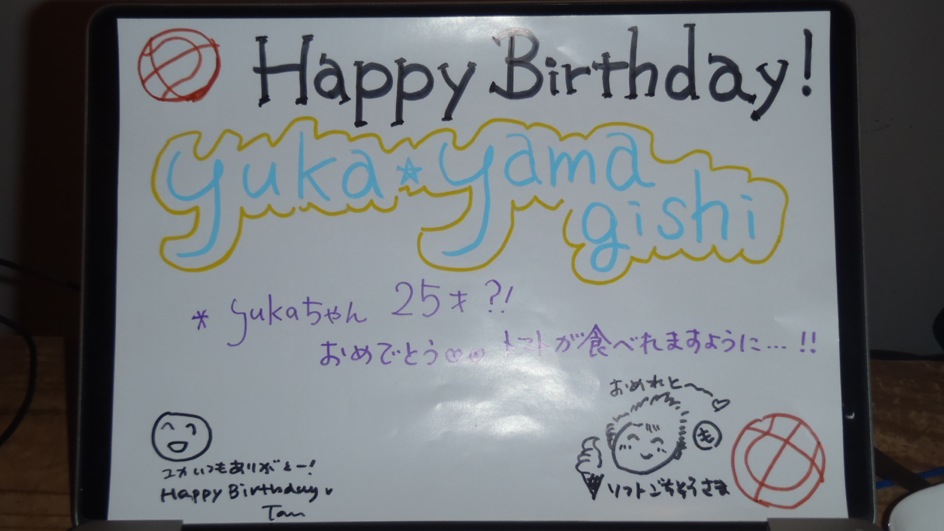 Happy Birthday!
yuka☆yama
gishi
* yukaちゃん 25才?!
おめでとう♡♡ トマトが食べれますように…!!
おめれと〜♡
も
ユカいつもありがとー!
Happy Birthday♥
Tan
ソフトごちそうさま